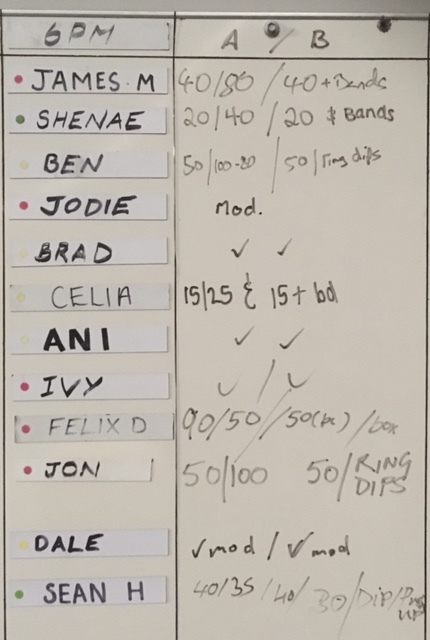 6PM A / B
JAMES M 40/80 / 40 + Bands
SHENAE 20/40 / 20 & Bands
BEN 50/100-80 / 50/ring dips
JODIE Mod.
BRAD ✓ ✓
CELIA 15/25 & 15 + bd
ANI ✓ ✓
IVY ✓ / ✓
FELIX D 90/50 / 50 /box
JON 50/100 50/RING
DIPS
DALE ✓mod / ✓mod
SEAN H 40/35 /40/ 30/Dip/